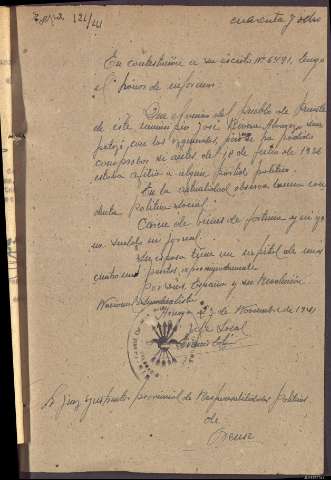 cuarenta y ocho
En contestación a su escrito Nº 6491, tengo
el honor de informar:
Que el vecino del pueblo de
de este municipio José Rivera
con las izquierdas, pero no ha podido
comprobar si antes del 18 de Julio de 1936
estaba afiliado a algún partido político.
En la actualidad observa buena con-
ducta político social.
Carece de bienes de fortuna y
su sueldo un jornal.
Su esposa tiene un capital de unas
cuatro mil pesetas, aproximadamente.
Por Dios, España y su Revolución
Nacional Sindicalista
27 de Noviembre de 1941
Jefe Local
Sr Juez Instructor provincial de Responsabilidades políticas
de
Orense